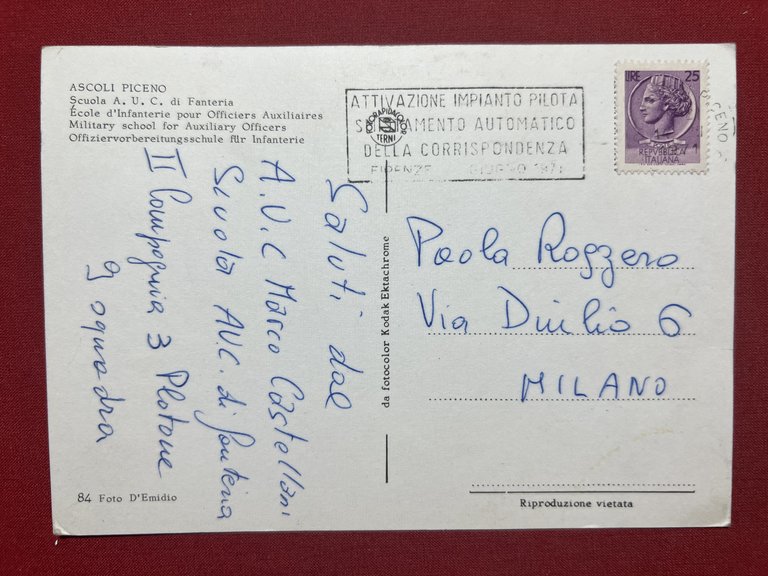 ASCOLI PICENO
Scuola A. U. C. di Fanteria
École d'Infanterie pour Officiers Auxiliaires
Military school for Auxiliary Officers
Offiziervorbereitungsschule für Infanterie
Saluti dal
A.U.C Marco Castellani
Scuola AUC. di fanteria
II Compagnia 3 Plotone
9 squadra
84 Foto D'Emidio
da fotocolor Kodak Ektachrome
FOTORAPIDACOLOR
TERNI
ATTIVAZIONE IMPIANTO PILOTA
SMISTAMENTO AUTOMATICO
DELLA CORRISPONDENZA
FIRENZE
LIRE 25
REPVBBLICA
ITALIANA
CENO
Paola Roggero
Via Duilio 6
MILANO
Riproduzione vietata